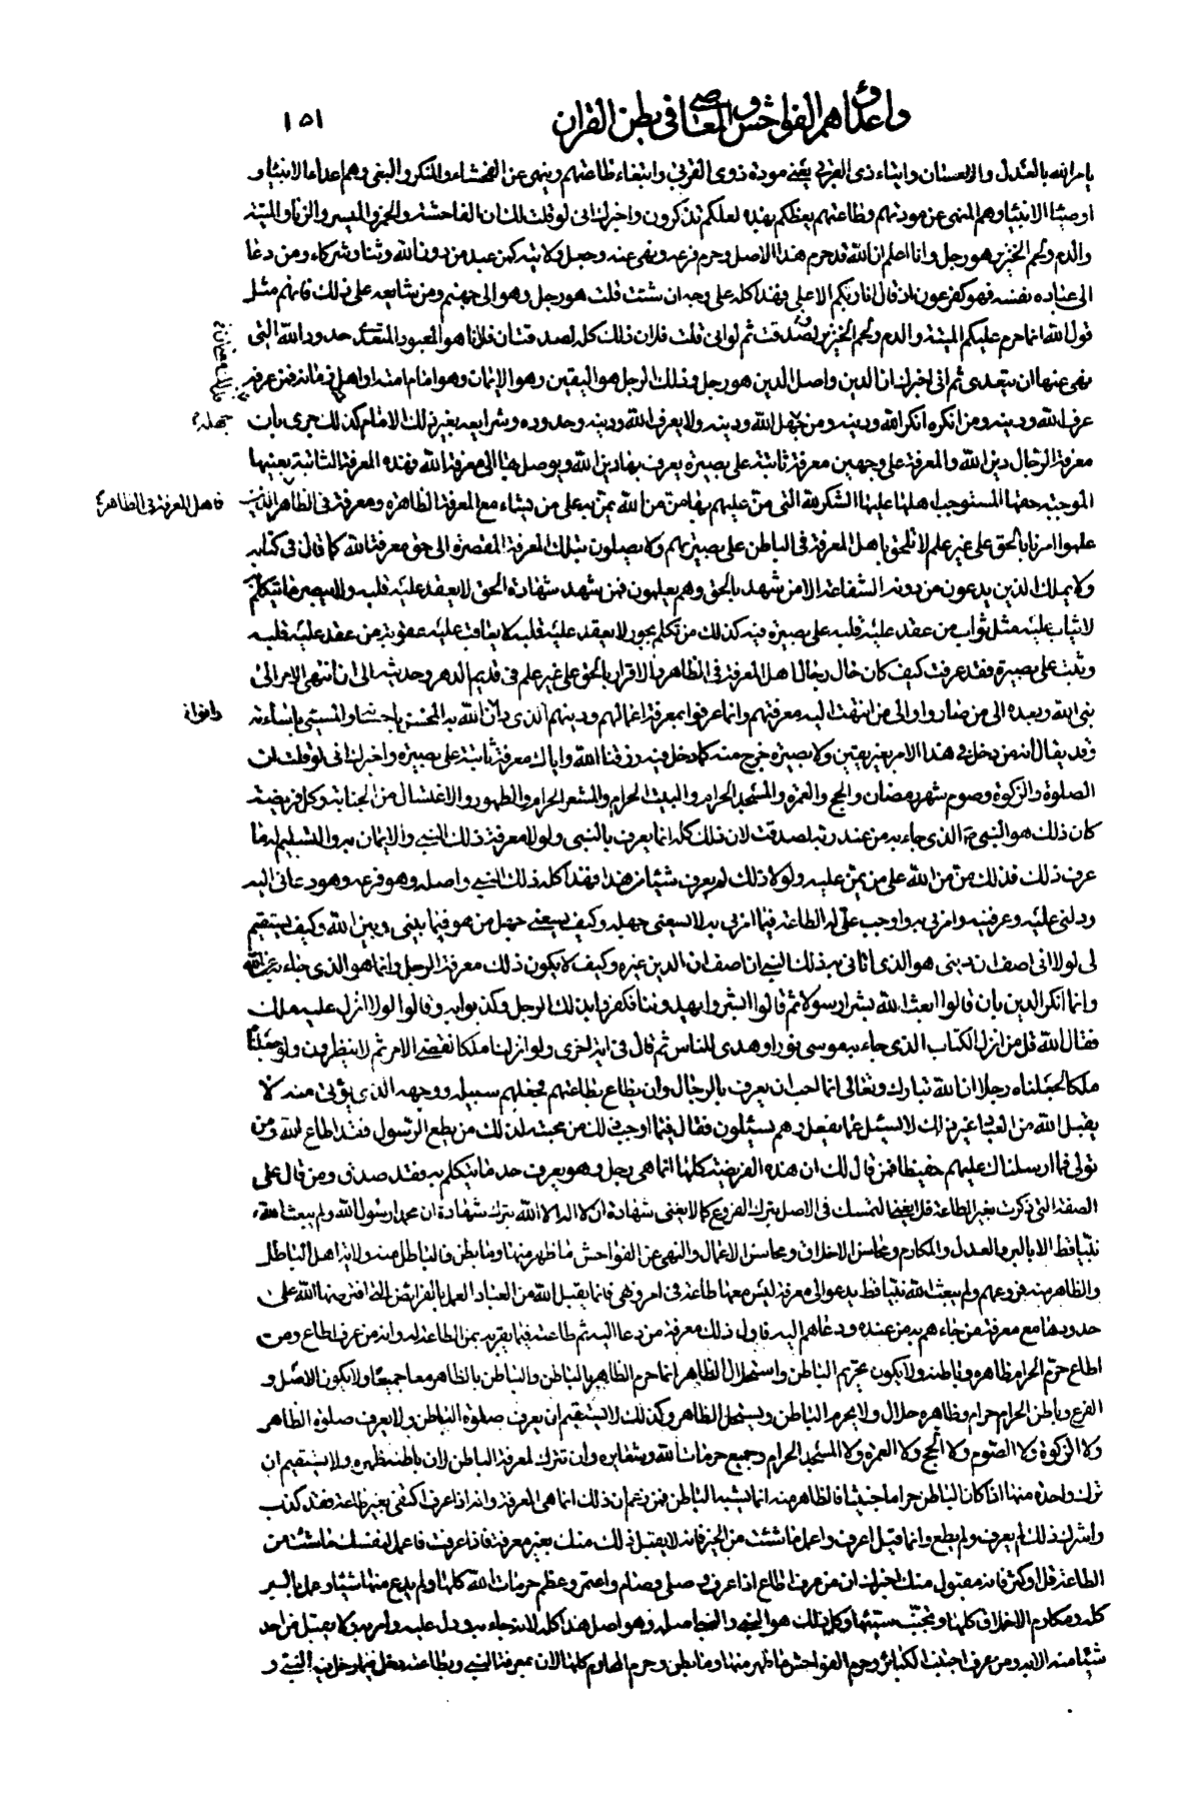 واعداؤهم الفواحش والمعاصي في بطن القران
١٥١
يامر الله بالعدل والاحسان وايتاء ذي القربى يعني مودة ذوي القربى وابتغاء طاعتهم وينهى عن الفحشاء والمنكر والبغي وهم اعداء الانبياء و
اوصياء الانبياء وهم المنهي عن مودتهم وطاعتهم يعظكم بهذه لعلكم تذكرون واخبرك اني لو قلت لك ان الفاحشة والخمر والميسر والزنا والميتة
والدم ولحم الخنزير هو رجل وانا اعلم ان الله قد حرم هذا الاصل وحرم فرعه ونهى عنه وجعل ولايته كمن عبد من دون الله وثنا وشركاء ومن دعا
الى عبادة نفسه فهو كفرعون اذ قال انا ربكم الاعلى وهذا كله على وجه ان شئت قلت هو رجل وهو الى جهنم ومن شايعه على ذلك فانهم مثل
قول الله انما حرم عليكم الميتة والدم ولحم الخنزير لصدقت ثم لو اني قلت فلان ذلك كله لصدقت ان فلانا هو المعبود المتعدي حدود الله التي
نهى عنها ان يتعدى ثم اني اخبرك ان الدين واصل الدين هو رجل وذلك الرجل هو اليقين وهو الايمان وهو امام امته او اهل زمانه فمن عرفه
عرف الله ودينه ومن انكره انكر الله ودينه ومن جهله جهل الله ودينه ولا يعرف الله ودينه وحدوده وشرايعه بغير ذلك الامام كذلك جرى بان
معرفة الرجال دين الله والمعرفة على وجهين معرفة ثابتة على بصيرة يعرف بها دين الله ويوصل بها الى معرفة الله فهذه المعرفة الثابتة بعينها
الموجبة حقها المستوجب اهلها عليها الشكر لله التي من عليهم بها من من الله يمن به على من يشاء مع المعرفة الظاهرة ومعرفة في الظاهر الذين
فاهل المعرفة في الظاهر
علموا امرنا بالحق على غير علم لا تلحق باهل المعرفة في الباطن على بصيرتهم ولا يصلون بتلك المعرفة المقصرة الى حق معرفة الله كما قال في كتابه
ولا يملك الذين يدعون من دونه الشفاعة الا من شهد بالحق وهم يعلمون فمن شهد شهادة الحق لا يعقد عليه قلبه ولا يبصر ما يتكلم
لا يثاب عليه مثل ثواب من عقد عليه قلبه على بصيرة فيه كذلك من تكلم بجور لا يعقد عليه قلبه لا يعاقب عليه عقوبة من عقد عليه قلبه
وثبت على بصيرة فقد عرفت كيف كان حال رجال اهل المعرفة في الظاهر والاقرار بالحق على غير علم في قديم الدهر وحديثه الى ان انتهى الامر الى
نبي الله وبعده الى من صاروا والى من انتهت اليه معرفتهم وانما عرفوا بمعرفة اعمالهم ودينهم الذي دان الله به المحسن باحسانه والمسيئ باساءته
وقد يقال انه من دخل في هذا الامر بغير يقين ولا بصيرة خرج منه كما دخل فيه رزقنا الله واياك معرفة ثابتة على بصيرة واخبرك اني لو قلت ان
الصلوة والزكوة وصوم شهر رمضان والحج والعمرة والمسجد الحرام والبيت الحرام والمشعر الحرام والطهور والاغتسال من الجنابة وكل فريضة
كان ذلك هو النبي الذي جاء به من عند ربه لصدقت لان ذلك كله انما يعرف بالنبي ولولا معرفة ذلك النبي والايمان به والتسليم له ما
عرف ذلك فذلك من من الله على من يمن عليه ولولا ذلك لم يعرف شيئا من هذا فهذا كله ذلك النبي واصله وهو فرعه وهو دعاني اليه
ودلني عليه وعرفنيه وامرني به واوجب علي له الطاعة فيما امرني به لا يسعني جهله وكيف يسعني جهل من هو فيما بيني وبين الله وكيف يستقيم
لي لولا اني اصف ان ديني هو الذي اتاني به ذلك النبي ان اصف ان الدين غيره وكيف لا يكون ذلك معرفة الرجل وانما هو الذي جاء به عن الله
وانما انكر الدين بان قالوا ابعث الله بشرا رسولا ثم قالوا ابشر يهدوننا فكفروا بذلك الرجل وكذبوا به وقالوا لولا انزل عليه ملك
فقال الله قل من انزل الكتاب الذي جاء به موسى نورا وهدى للناس ثم قال في اية اخرى ولو انزلنا ملكا لقضي الامر ثم لا ينظرون ولو جعلناه
ملكا لجعلناه رجلا ان الله تبارك وتعالى انما احب ان يعرف بالرجال وان يطاع بطاعتهم فجعلهم سبيله ووجهه الذي يؤتى منه لا
يقبل الله من العباد غير ذلك لا يسئل عما يفعل وهم يسئلون فقال فيما اوجب ذلك من محبته لذلك من يطع الرسول فقد اطاع الله ومن
تولى فما ارسلناك عليهم حفيظا فمن قال لك ان هذه الفريضة كلها انما هي رجل وهو يعرف حد ما يتكلم به فقد صدق ومن قال على
الصفة التي ذكرت بغير الطاعة فلا يغني التمسك في الاصل بترك الفروع كما لا يغني شهادة ان لا اله الا الله بترك شهادة ان محمدا رسول الله ولم يبعث الله
نبيا قط الا بالبر والعدل والمكارم ومحاسن الاخلاق ومحاسن الاعمال والنهي عن الفواحش ما ظهر منها وما بطن فالباطل منه ولاية اهل الباطل
والظاهر منه فروعهم ولم يبعث الله نبيا قط يدعو الى معرفة ليس معها طاعة في امر ونهي فانما يقبل الله من العباد العمل بالفرايض التي افترضها الله على
حدودها مع معرفة من جاءهم به من عنده ودعاهم اليه فاول ذلك معرفة من دعا اليه ثم طاعته فيما يقربه بمن الطاعة له وانه من عرف اطاع ومن
اطاع حرم الحرام ظاهره وباطنه ولا يكون تحريم الباطن واستحلال الظاهر انما حرم الظاهر بالباطن والباطن بالظاهر معا جميعا ولا يكون الاصل و
الفرع وباطن الحرام حرام وظاهره حلال ولا يحرم الباطن ويستحل الظاهر وكذلك لا يستقيم ان يعرف صلوة الباطن ولا يعرف صلوة الظاهر
ولا الزكوة ولا الصوم ولا الحج ولا العمرة ولا المسجد الحرام وجميع حرمات الله وشعايره وان تترك لمعرفة الباطن لان باطنه ظهره ولا يستقيم ان
ترك واحدة منها اذا كان الباطن حراما خبيثا فالظاهر منه انما يشبه الباطن فمن زعم ان ذلك انما هي المعرفة وانه اذا عرف اكتفى بغير طاعة فقد كذب
واشرك ذلك لم يعرف ولم يطع وانما قيل اعرف واعمل ما شئت من الخير فانه لا يقبل ذلك منك بغير معرفة فاذا عرفت فاعمل لنفسك ما شئت من
الطاعة قل او كثر فانه مقبول منك اخبرك ان من عرف اطاع اذا عرف وصلى وصام واعتمر وعظم حرمات الله كلها ولم يدع منها شيئا وعمل بالبر
كله ومكارم الاخلاق كلها وتجنب سيئها وكل ذلك هو النبي والنبي اصله وهو اصل هذا كله لانه جاء به ودل عليه وامر به ولا يقبل من احد
شيئا منه الا به ومن عرف اجتنب الكبائر وحرم الفواحش ما ظهر منها وما بطن وحرم المحارم كلها لان بمعرفة النبي وبطاعته دخل فيما دخل فيه النبي و